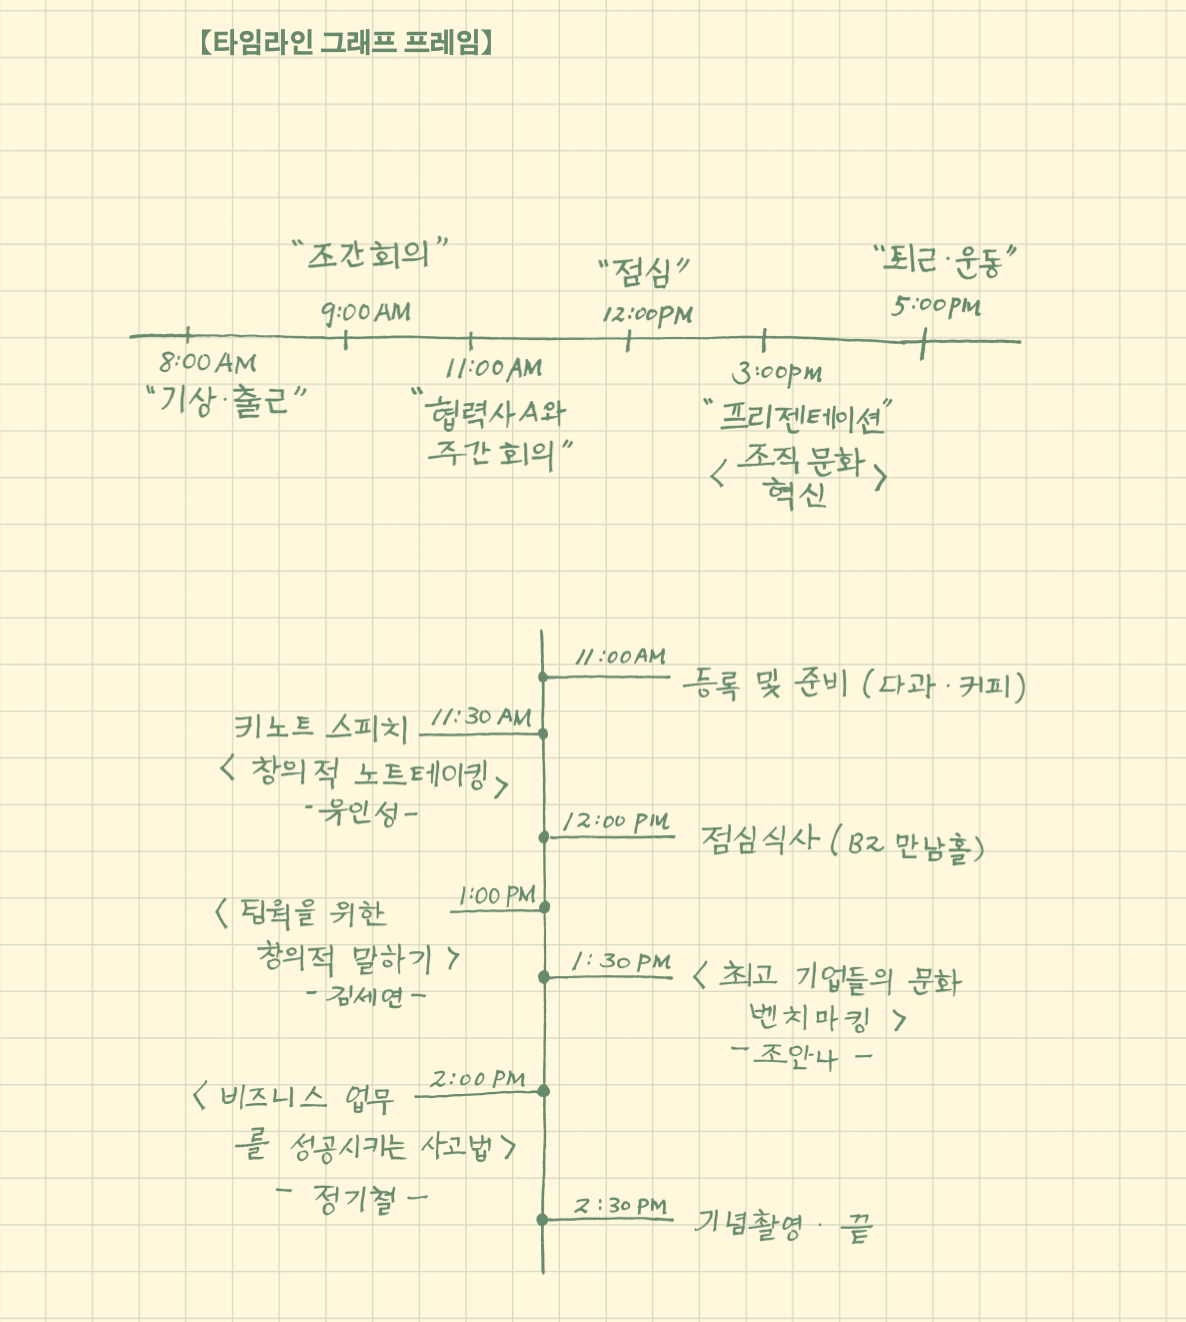 【타임라인 그래프 프레임】
"조간회의"
9:00AM
"점심"
12:00PM
"퇴근·운동"
5:00PM
8:00AM
"기상·출근"
11:00AM
"협력사A와
주간회의"
3:00pm
"프리젠테이션"
< 조직문화
혁신 >
11:00AM
등록 및 준비 (다과·커피)
키노트 스피치
11:30 AM
< 창의적 노트테이킹 >
-유인성-
12:00 PM
점심식사 (B2 만남홀)
1:00 PM
< 팀웍을 위한
창의적 말하기 >
- 김세연 -
1:30 PM
< 최고 기업들의 문화
벤치마킹 >
- 조안나 -
2:00 PM
< 비즈니스 업무
를 성공시키는 사고법 >
- 정기철 -
2:30 PM
기념촬영 · 끝